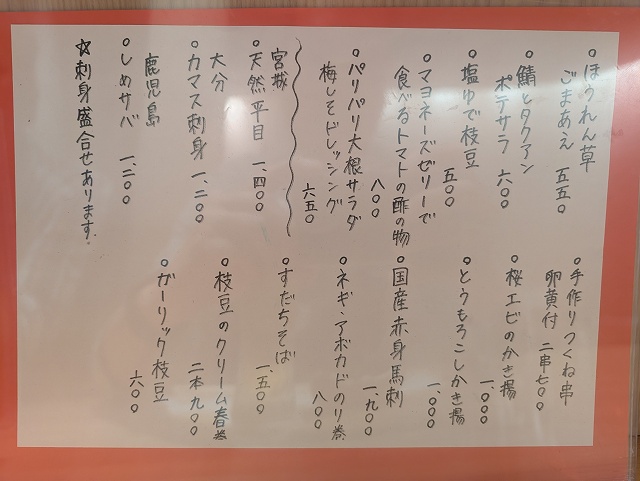 ○ほうれん草
ごまあえ 五五〇
○鯖とタクアン
ポテサラ 六〇〇
○塩ゆで枝豆
五〇〇
○マヨネーズゼリーで
食べるトマトの酢の物
八〇〇
○パリパリ大根サラダ
梅しそドレッシング
六五〇
宮城
○天然平目 一、四〇〇
大分
○カマス刺身 一、二〇〇
鹿児島
○しめサバ 一、二〇〇
☆刺身盛合せあります。
○手作りつくね串
卵黄付 二串七〇〇
○桜エビのかき揚
一、〇〇〇
○とうもろこしかき揚
一、〇〇〇
○国産赤身馬刺
一、九〇〇
○ネギ・アボカドのり巻
八〇〇
○すだちそば
一、五〇〇
○枝豆のクリーム春巻
二本九〇〇
○ガーリック枝豆
六〇〇